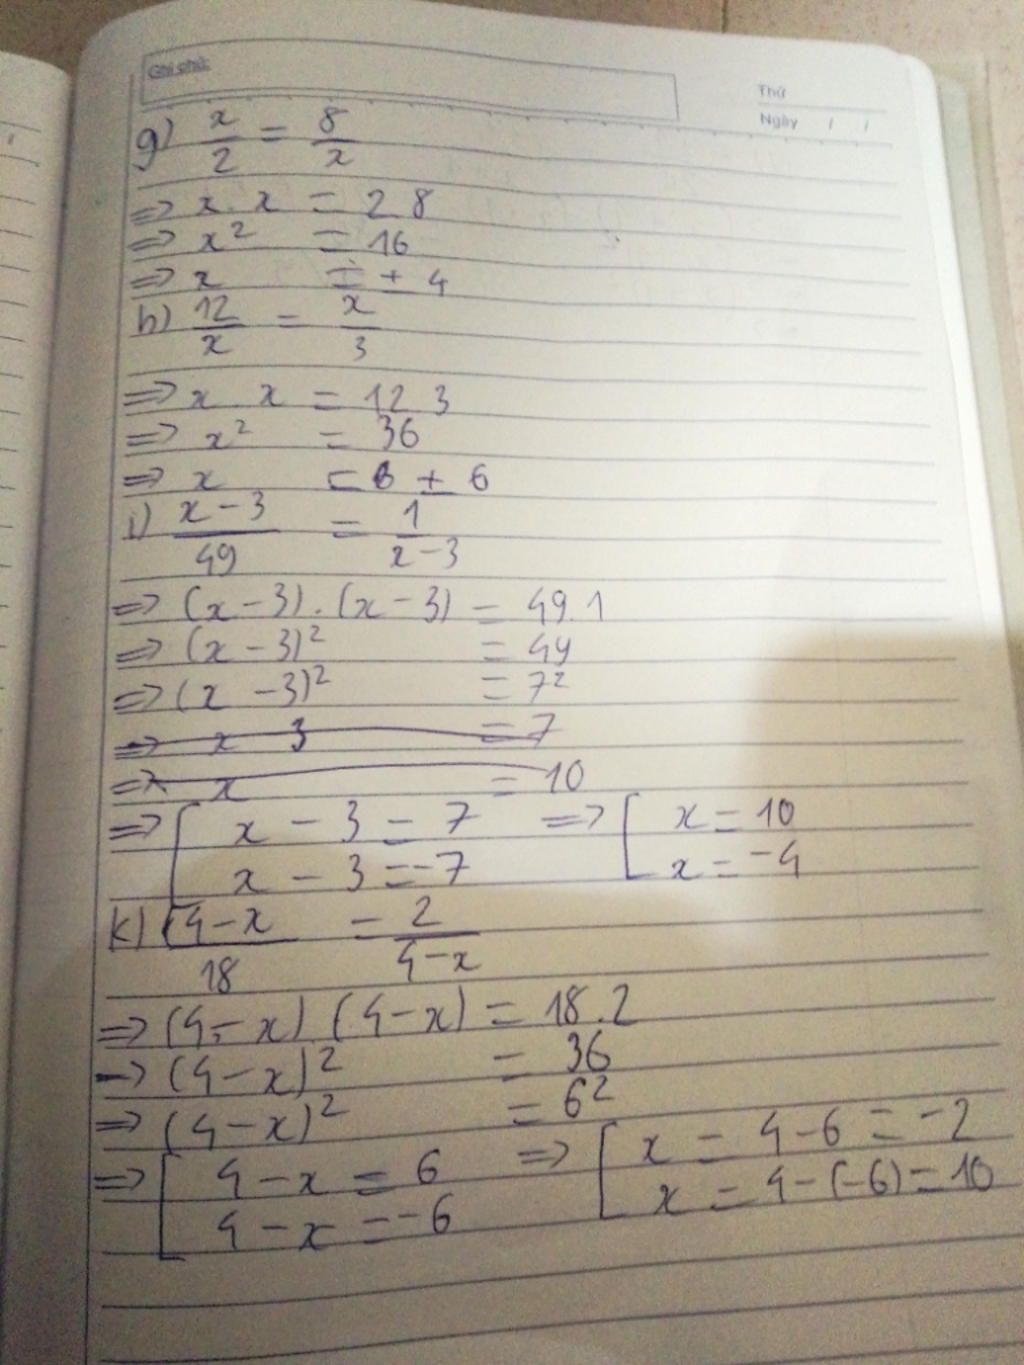 Ghi chú:
Thứ
Ngày / /
g) x/2 = 8/x
=> x . x = 2 8
=> x² = 16
=> x = ± 4
h) 12/x = x/3
=> x . x = 12 3
=> x² = 36
=> x = ± 6
i) (x - 3)/49 = 1/(x - 3)
=> (x - 3) . (x - 3) = 49 . 1
=> (x - 3)² = 49
=> (x - 3)² = 7²
=> x 3 = 7
=> x = 10
=> [ x - 3 = 7 => [ x = 10
x - 3 = -7 x = -4
k) (4 - x)/18 = 2/(4 - x)
=> (4 - x) . (4 - x) = 18 . 2
=> (4 - x)² = 36
=> (4 - x)² = 6²
=> [ 4 - x = 6 => [ x = 4 - 6 = -2
4 - x = -6 x = 4 - (-6) = 10